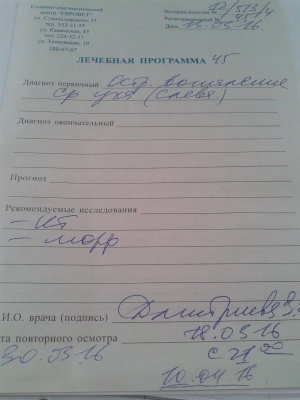 Клинико-диагностический
центр "ЕВРОМЕД"
ул. Станиславского, 51
тел. 352-11-59
ул. Каменская, 45
тел. 224-52-11
ул. Тюменская, 10
380-67-87
История болезни № 12/513/4
Регистрационный №
Дата 15.03.16
ЛЕЧЕБНАЯ ПРОГРАММА 45
Диагноз первичный Остр. воспаление
ср уха (слева)
Диагноз окончательный
Прогноз
Рекомендуемые исследования
- КТ
- морф
И.О. врача (подпись) Дмитриева
та повторного осмотра 18.03.16
30.03.16
10.04.16